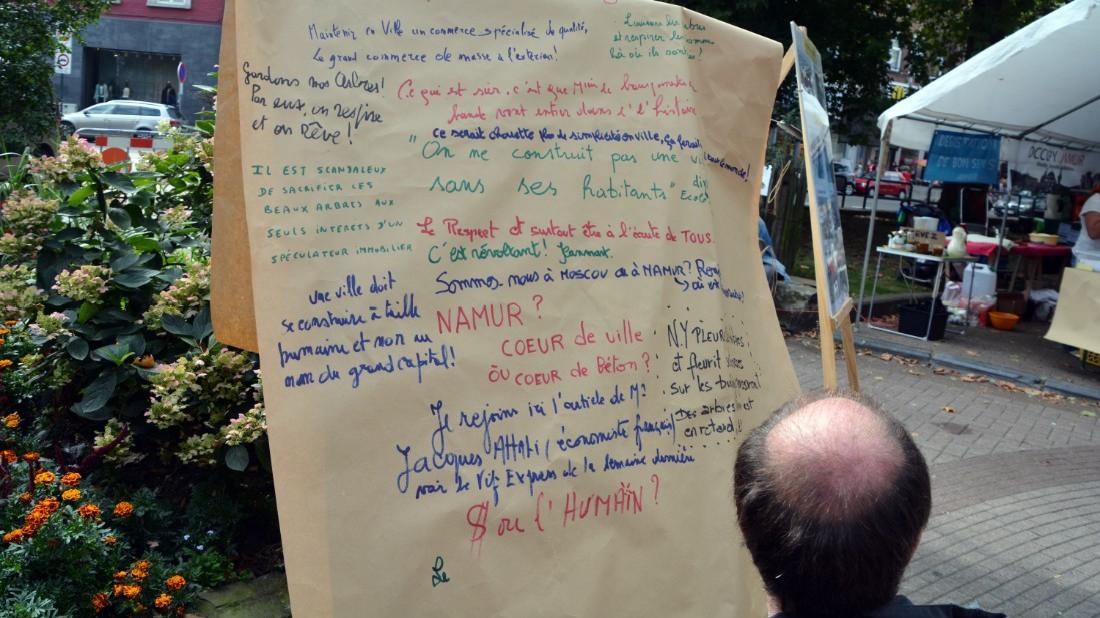 Maintenir en Ville un commerce spécialisé de qualité,
Le grand commerce de masse à l'extérieur!
et respirer
là où ils sont!
Gardons nos Arbres!
Par eux, on respire
et on Rêve!
Ce qui est sûr, c'est que Mme la bourgmestre
entrer dans l'histoire
ce serait chouette
"On ne construit pas une
sans ses habitants"
IL EST SCANDALEUX
DE SACRIFIER LES
BEAUX ARBRES AUX
SEULS INTERETS D'UN
SPÉCULATEUR IMMOBILIER
Le Respect et surtout être à l'écoute de TOUS.
C'est révoltant! Jeanmart.
Sommes-nous à MOSCOU ou à NAMUR?
une ville doit
se construire à taille
humaine et non au
nom du grand capital!
NAMUR?
COEUR de ville
OU COEUR de Béton?
N.Y PLEUR
et fleurit
sur les
Des arbres
en retard!
Je rejoins ici l'article de Mr
Jacques ATTALI (économiste français)
voir le Vif Express de la semaine dernière
$ ou l'HUMAÏN?
Le
OCCUPY NAMUR
DEGUSTATION
DE BON SENS